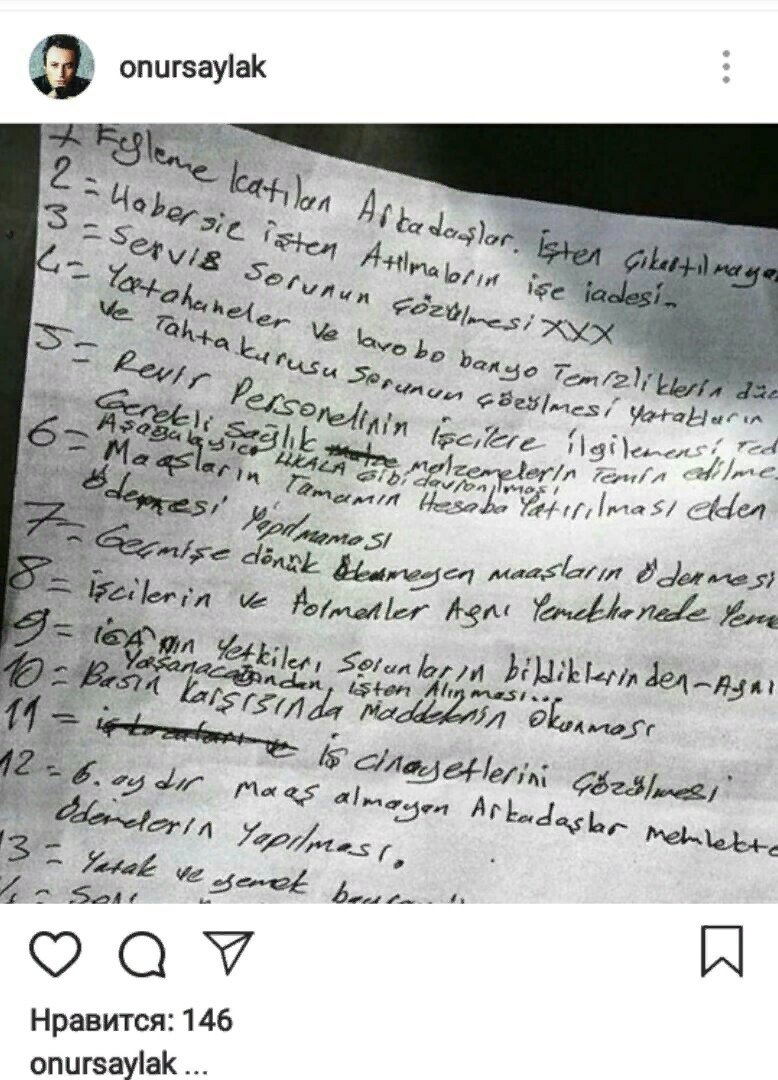 onursaylak
1 Eyleme katılan Arkadaşlar. işten çıkartılmayac
2 = Habersiz işten Atılmaların işe iadesi-
3 = Servis Sorunun çözülmesi XXX
4 = Yatahaneler ve lavobo banyo Temizliklerin
ve Tahta kurusu Sorunun çözülmesi yatakların
5 = Revir Personelinin işcilere ilgilenensi,
Gerekli Sağlık malzemelerin Temin edilme
Aşağılayıcı Gibi davranılması
6 = Maaşların Tamamın Hesaba Yatırılması elden
Ödemesi Yapılmaması
7 = Geçmişe dönük meyen maaşların Ödenmesi
8 = işcilerin ve Formenler Aynı Yemekhanede Yeme
9 = iGA nın Yetkileri Sorunların bildiklerinden - Aynı
Yaşanacağından, işten Alınması...
10 = Basın karşısında Maddelerin Okunması
11 = iş cinayetlerini Çözülmesi
12 = 6. aydır maaş almayan Arkadaşlar memlekte
Ödemelerin Yapılması.
13 = Yatak ve yemek
Нравится: 146
onursaylak ...